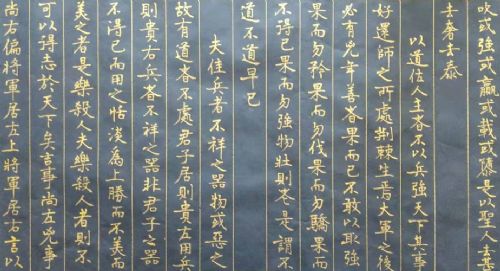 吹或強或羸或載或隳是以聖人去甚
去奢去泰
以道佐人主者不以兵強天下其事
好還師之所處荊棘生焉大軍之後
必有凶年善者果而已不敢以取強
果而勿矜果而勿伐果而勿驕果而
不得已果而勿強物壯則老是謂不
道不道早已
夫佳兵者不祥之器物或惡之
故有道者不處君子居則貴左用兵
則貴右兵者不祥之器非君子之器
不得已而用之恬淡為上勝而不美而
美之者是樂殺人夫樂殺人者則不
可以得志於天下矣吉事尚左凶事
尚右偏將軍居左上將軍居右言以